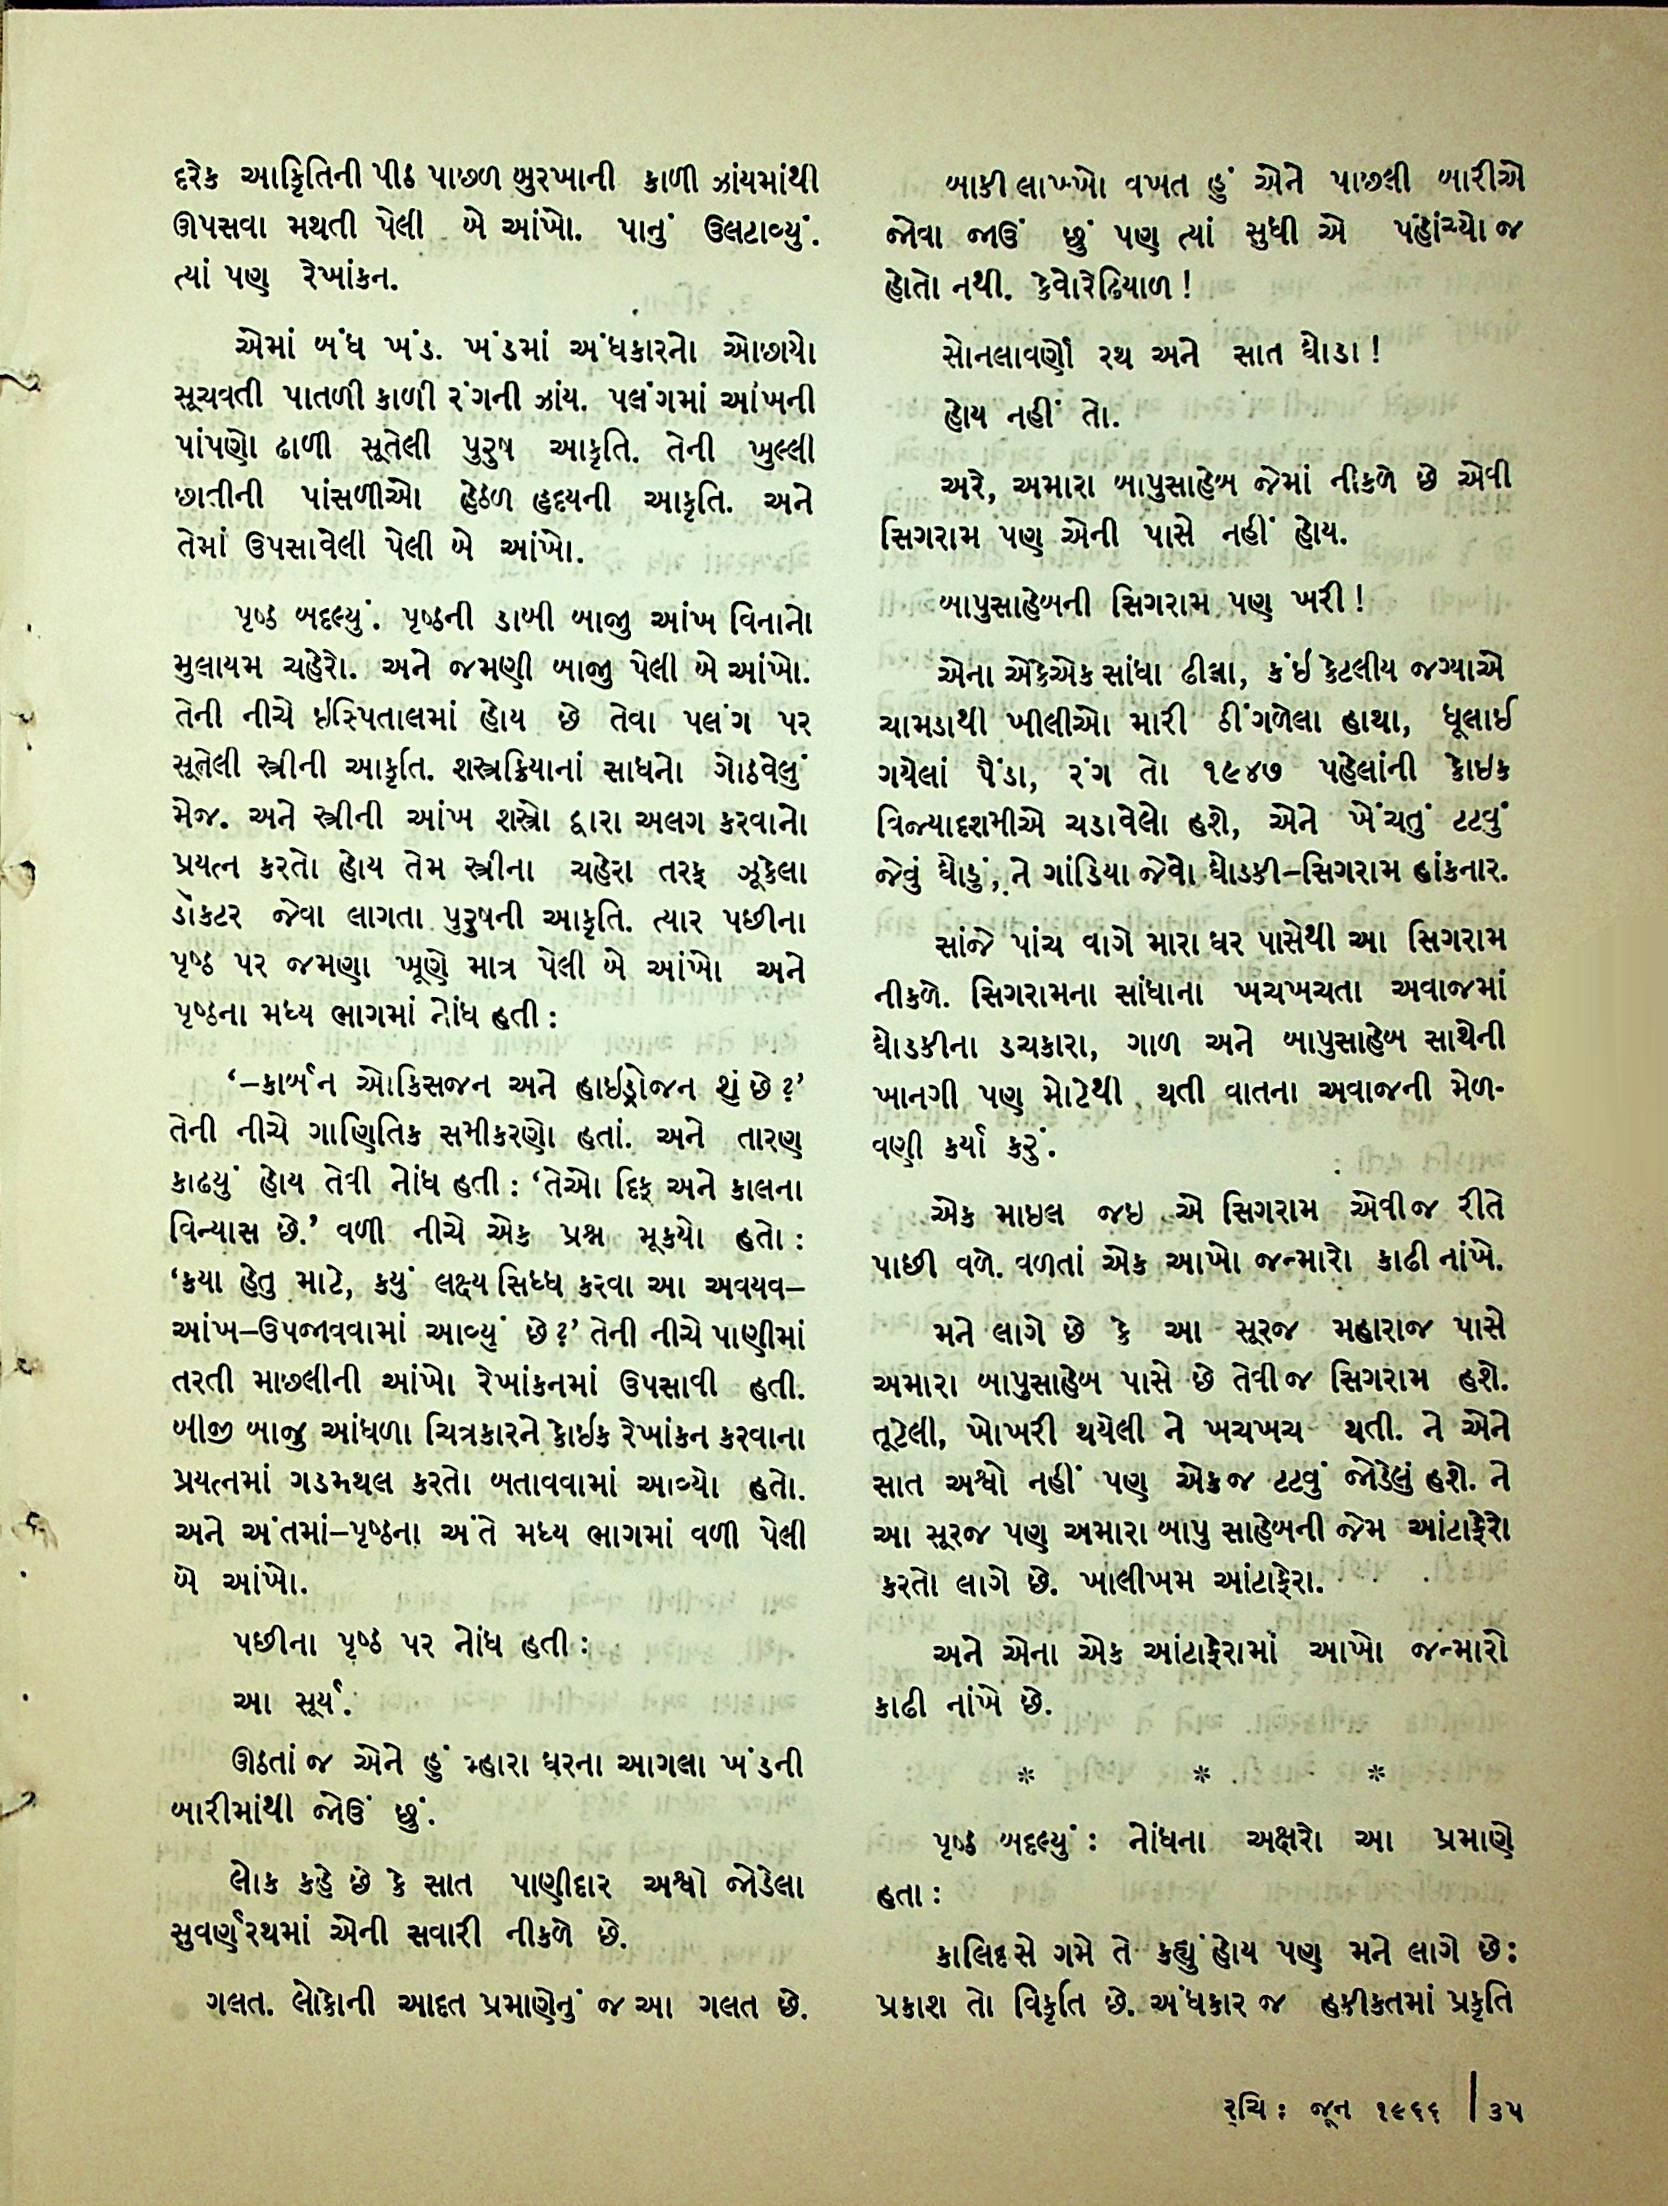 દરેક આકૃિતિની પીઠ પાછળ બુરખાની કાળી ઝાંયમાંથી
ઊપસવા મથતી પેલી બે આંખો. પાનું ઉલટાવ્યું.
ત્યાં પણ રેખાંકન.
એમાં બંધ ખંડ. ખંડમાં અંધકારનો ઓછાયો
સૂચવતી પાતળી કાળી રંગની ઝાંય. પલંગમાં આંખની
પાંપણો ઢાળી સૂતેલી પુરુષ આકૃતિ. તેની ખુલ્લી
છાતીની પાંસળીઓ હેઠળ હૃદયની આકૃતિ. અને
તેમાં ઉપસાવેલી પેલી બે આંખો.
પૃષ્ઠ બદલ્યું. પૃષ્ઠની ડાબી બાજુ આંખ વિનાનો
મુલાયમ ચહેરો. અને જમણી બાજુ પેલી બે આંખો.
તેની નીચે ઇસ્પિતાલમાં હોય છે તેવા પલંગ પર
સૂતેલી સ્ત્રીની આકૃતિ. શસ્ત્રક્રિયાનાં સાધનો ગોઠવેલું
મેજ. અને સ્ત્રીની આંખ શસ્ત્રો દ્વારા અલગ કરવાનો
પ્રયત્ન કરતો હોય તેમ સ્ત્રીના ચહેરા તરફ ઝૂકેલા
ડૉકટર જેવા લાગતા પુરુષની આકૃતિ. ત્યાર પછીના
પૃષ્ઠ પર જમણા ખૂણે માત્ર પેલી બે આંખો અને
પૃષ્ઠના મધ્ય ભાગમાં નોંધ હતી :
‘–કાર્બન ઓકિસજન અને હાઈડ્રોજન શું છે ?’
તેની નીચે ગાણિતિક સમીકરણો હતાં. અને તારણ
કાઢયું હોય તેવી નોંધ હતી : ‘તેઓ દિક્ અને કાલના
વિન્યાસ છે.’ વળી નીચે એક પ્રશ્ન મૂકયો હતો :
‘કયા હેતુ માટે, કયું લક્ષ્ય સિધ્ધ કરવા આ અવયવ–
આંખ–ઉપજાવવામાં આવ્યું છે ?’ તેની નીચે પાણીમાં
તરતી માછલીની આંખો રેખાંકનમાં ઉપસાવી હતી.
બીજી બાજુ આંધળા ચિત્રકારને કોઈક રેખાંકન કરવાના
પ્રયત્નમાં ગડમથલ કરતો બતાવવામાં આવ્યો હતો.
અને અંતમાં–પૃષ્ઠના અંતે મધ્ય ભાગમાં વળી પેલી
બે આંખો.
પછીના પૃષ્ઠ પર નોંધ હતી :
આ સૂર્ય.
ઊઠતાં જ એને હું મ્હારા ઘરના આગલા ખંડની
બારીમાંથી જોઉં છું.
લોક કહે છે કે સાત પાણીદાર અશ્વો જોડેલા
સુવર્ણરથમાં એની સવારી નીકળે છે.
ગલત. લોકોની આદત પ્રમાણેનું જ આ ગલત છે.
બાકી લાખ્ખો વખત હું એને પાછલી બારીએ
જોવા જાઉં છું પણ ત્યાં સુધી એ પહોંચ્યો જ
હોતો નથી. કેવોરેઢિયાળ !
સોનલાવર્ણો રથ અને સાત ઘોડા !
હોય નહીં તો.
અરે, અમારા બાપુસાહેબ જેમાં નીકળે છે એવી
સિગરામ પણ એની પાસે નહીં હોય.
બાપુસાહેબની સિગરામ પણ ખરી !
એના એકેએક સાંધા ઢીલા, કંઈ કેટલીય જગ્યાએ
ચામડાથી ખીલીઓ મારી ઠીંગળેલા હાથા, ધૂલાઈ
ગયેલાં પૈંડા, રંગ તો ૧૯૪૭ પહેલાંની કોઇક
વિજ્યાદશમીએ ચડાવેલો હશે, એને ખેંચતું ટટવું
જેવું ઘોડું, ને ગાંડિયા જેવો ઘોડકી–સિગરામ હાંકનાર.
સાંજે પાંચ વાગે મારા ઘર પાસેથી આ સિગરામ
નીકળે. સિગરામના સાંધાના ખચખચતા અવાજમાં
ઘોડકીના ડચકારા, ગાળ અને બાપુસાહેબ સાથેની
ખાનગી પણ મોટેથી થતી વાતના અવાજની મેળ-
વણી કર્યા કરું.
એક માઇલ જઇ એ સિગરામ એવીજ રીતે
પાછી વળે. વળતાં એક આખો જન્મારો કાઢી નાંખે.
મને લાગે છે કે આ સૂરજ મહારાજ પાસે
અમારા બાપુસાહેબ પાસે છે તેવીજ સિગરામ હશે.
તૂટેલી, ખોખરી થયેલી ને ખચખચ થતી. ને એને
સાત અશ્વો નહીં પણ એકજ ટટવું જોડેલું હશે. ને
આ સૂરજ પણ અમારા બાપુ સાહેબની જેમ આંટાફેરો
કરતો લાગે છે. ખાલીખમ આંટાફેરા.
અને એના એક આંટાફેરામાં આખો જન્મારો
કાઢી નાંખે છે.
* * *
પૃષ્ઠ બદલ્યું : નોંધના અક્ષરો આ પ્રમાણે
હતા :
કાલિદસે ગમે તે કહ્યું હોય પણ મને લાગે છે :
પ્રકાશ તો વિકૃતિ છે. અંધકાર જ હકીકતમાં પ્રકૃતિ
રુચિ : જૂન ૧૯૬૬ | ૩૫